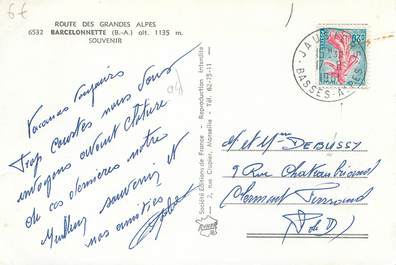 6€
ROUTE DES GRANDES ALPES
6532 BARCELONNETTE (B.-A.) alt. 1135 m.
SOUVENIR
Vacances toujours
trop courtes nous vous
envoyons avant
de ces dernières notre
meilleur souvenir et
nos amitiés
Société Editions de France - Reproduction Interdite
Marseille - Tél. 62-15-11
JAU
BASSES-ALPES
0,20
M et Mme DEBUSSY
9 Rue Chateaubriand
Clermont Ferrand
(P de D)